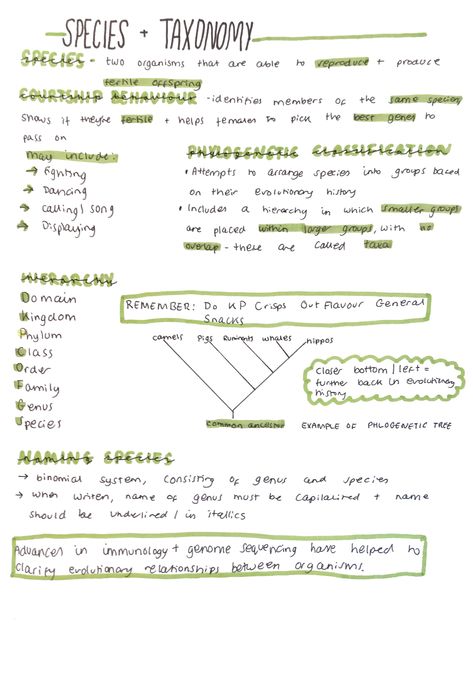 SPECIES + TAXONOMY
SPECIES - two organisms that are able to reproduce + produce
fertile offspring
COURTSHIP BEHAVIOUR - identifies members of the same species,
shows if they're fertile + helps females to pick the best genes to
pass on
may include:
→ fighting
→ Dancing
→ calling / song
→ Displaying
PHYLOGENETIC CLASSIFICATION
• Attempts to arrange species into groups based
on their evolutionary history
• Includes a hierarchy in which smaller groups
are placed within larger groups, with no
overlap - these are called taxa
HIERARCHY
Domain
Kingdom
Phylum
Class
Order
Family
Genus
Species
REMEMBER: Do KP Crisps Out Flavour General
Snacks
camels pigs Ruminants whales hippos
closer bottom / left =
further back in evolutionary
history
common ancestor
EXAMPLE OF PHLOGENETIC TREE
NAMING SPECIES
→ binomial system, consisting of genus and species
→ when writen, name of genus must be capitalised + name
should be underlined / in itallics
Advances in immunology + genome sequencing have helped to
clarify evolutionary relationships between organisms.